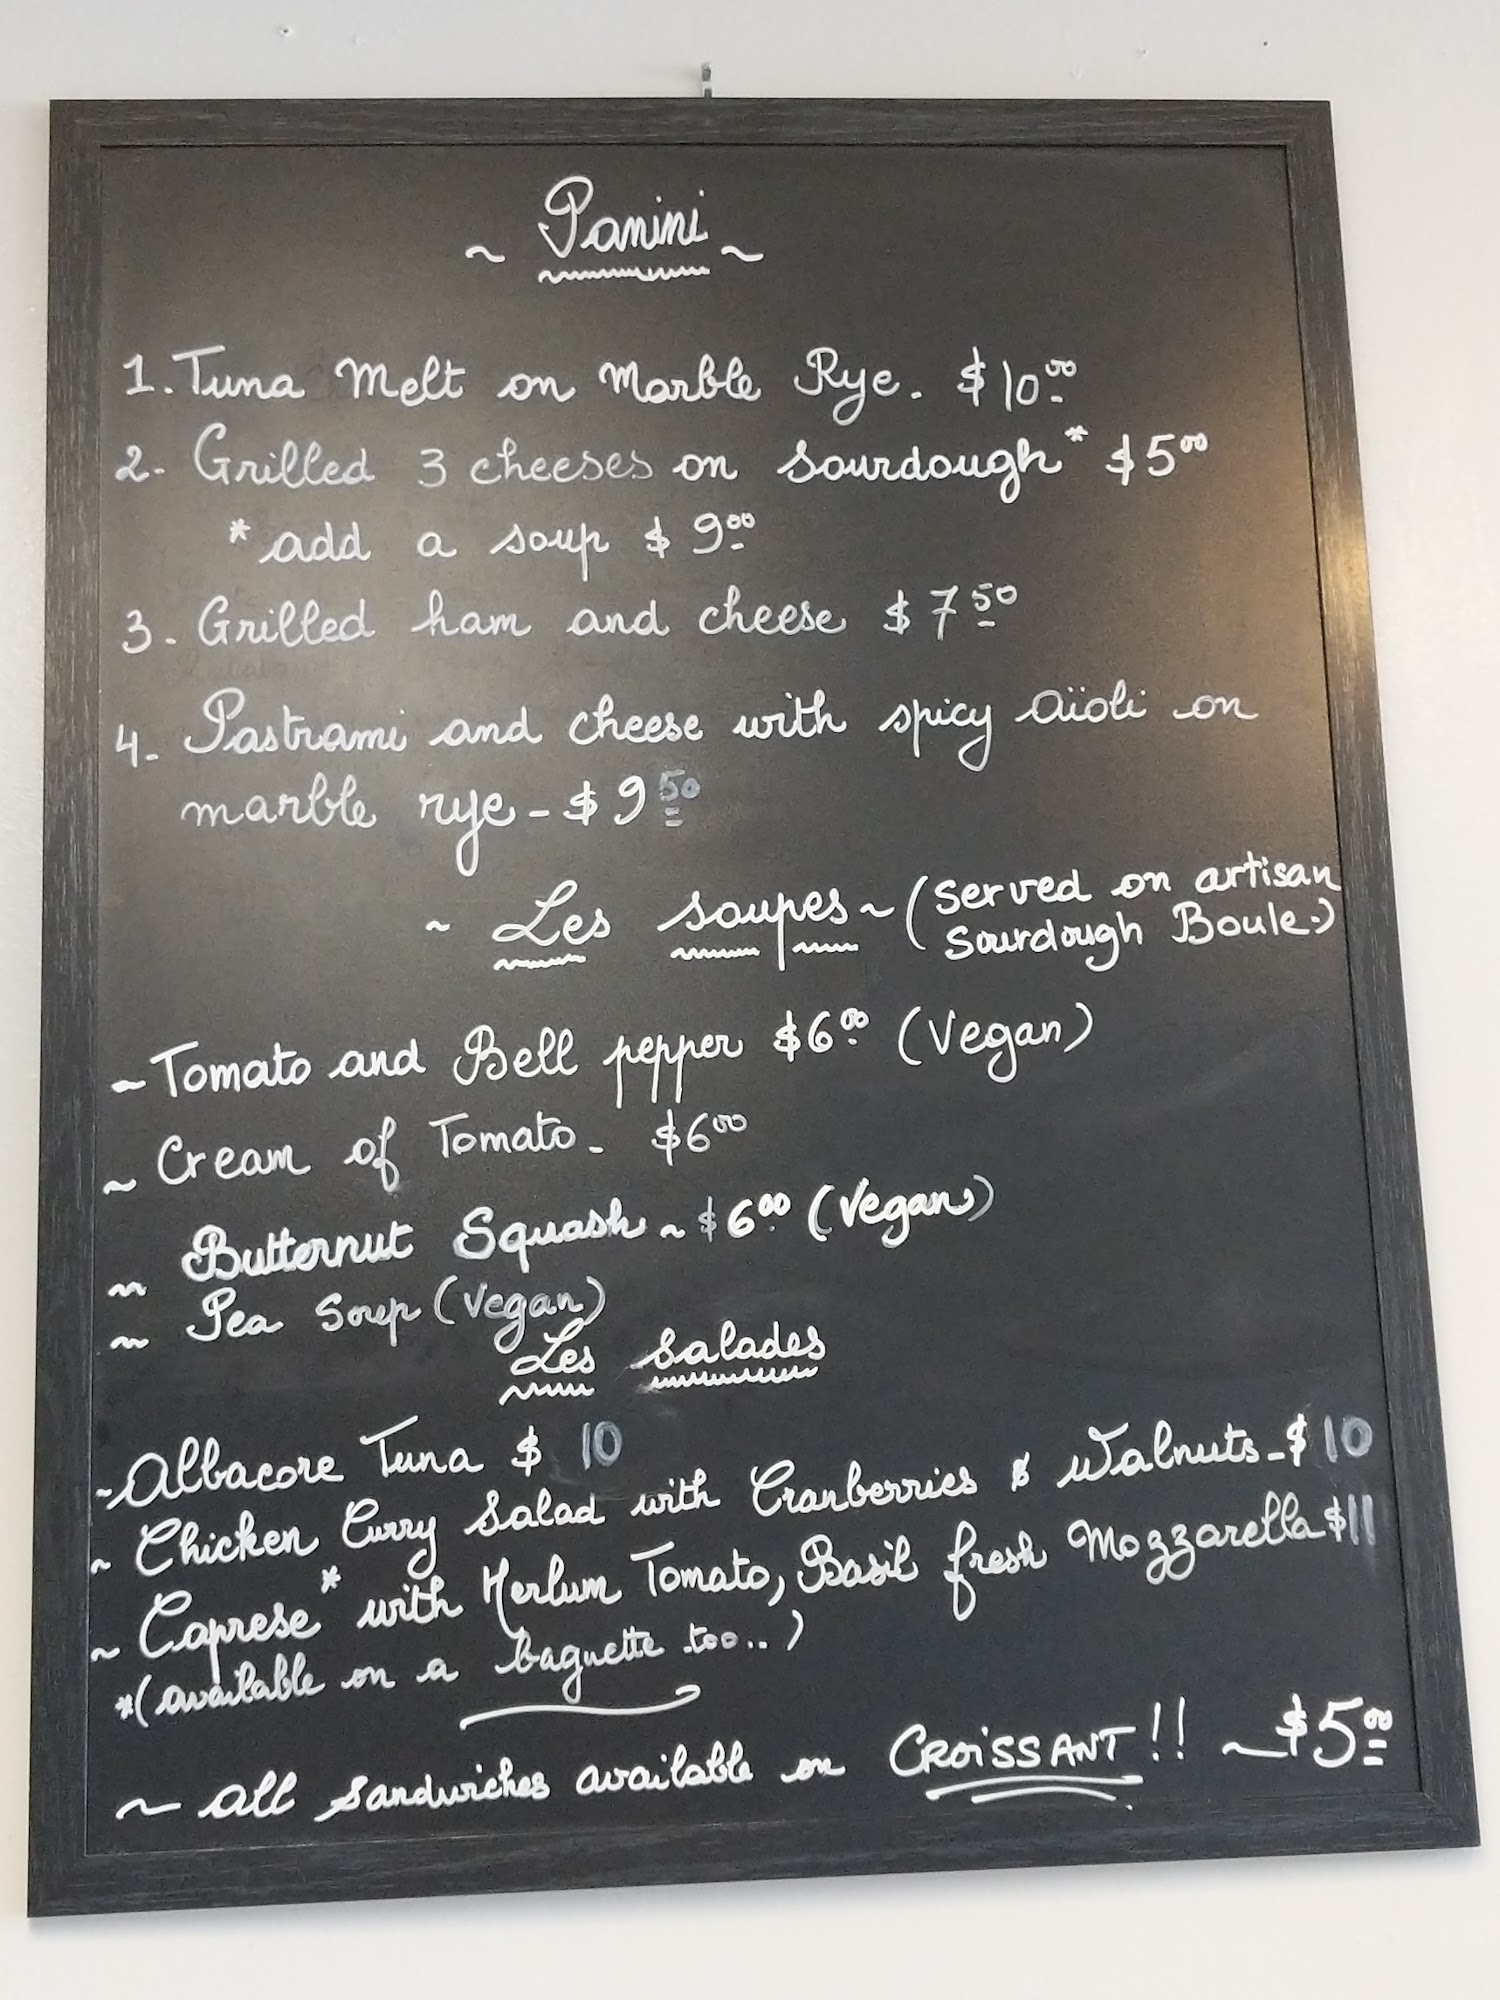 ~ Panini ~
1. Tuna Melt on Marble Rye. $10.00
2- Grilled 3 cheeses on sourdough* $5.00
* add a soup $9.00
3. Grilled ham and cheese $7.50
4- Pastrami and cheese with spicy aïoli on
marble rye - $9.50
~ Les soupes ~ (Served on artisan
Sourdough Boule.)
~ Tomato and Bell pepper $6.00 (Vegan)
~ Cream of Tomato - $6.00
~ Butternut Squash ~ $6.00 (Vegan)
~ Pea Soup (Vegan)
Les salades
~ Albacore Tuna $ 10
~ Chicken Curry Salad with Cranberries & Walnuts - $10
~ Caprese* with Herlum Tomato, Basil fresh Mozzarella $11
*(available on a baguette too..)
~ all sandwiches available on CROISSANT!! ~ $5.00